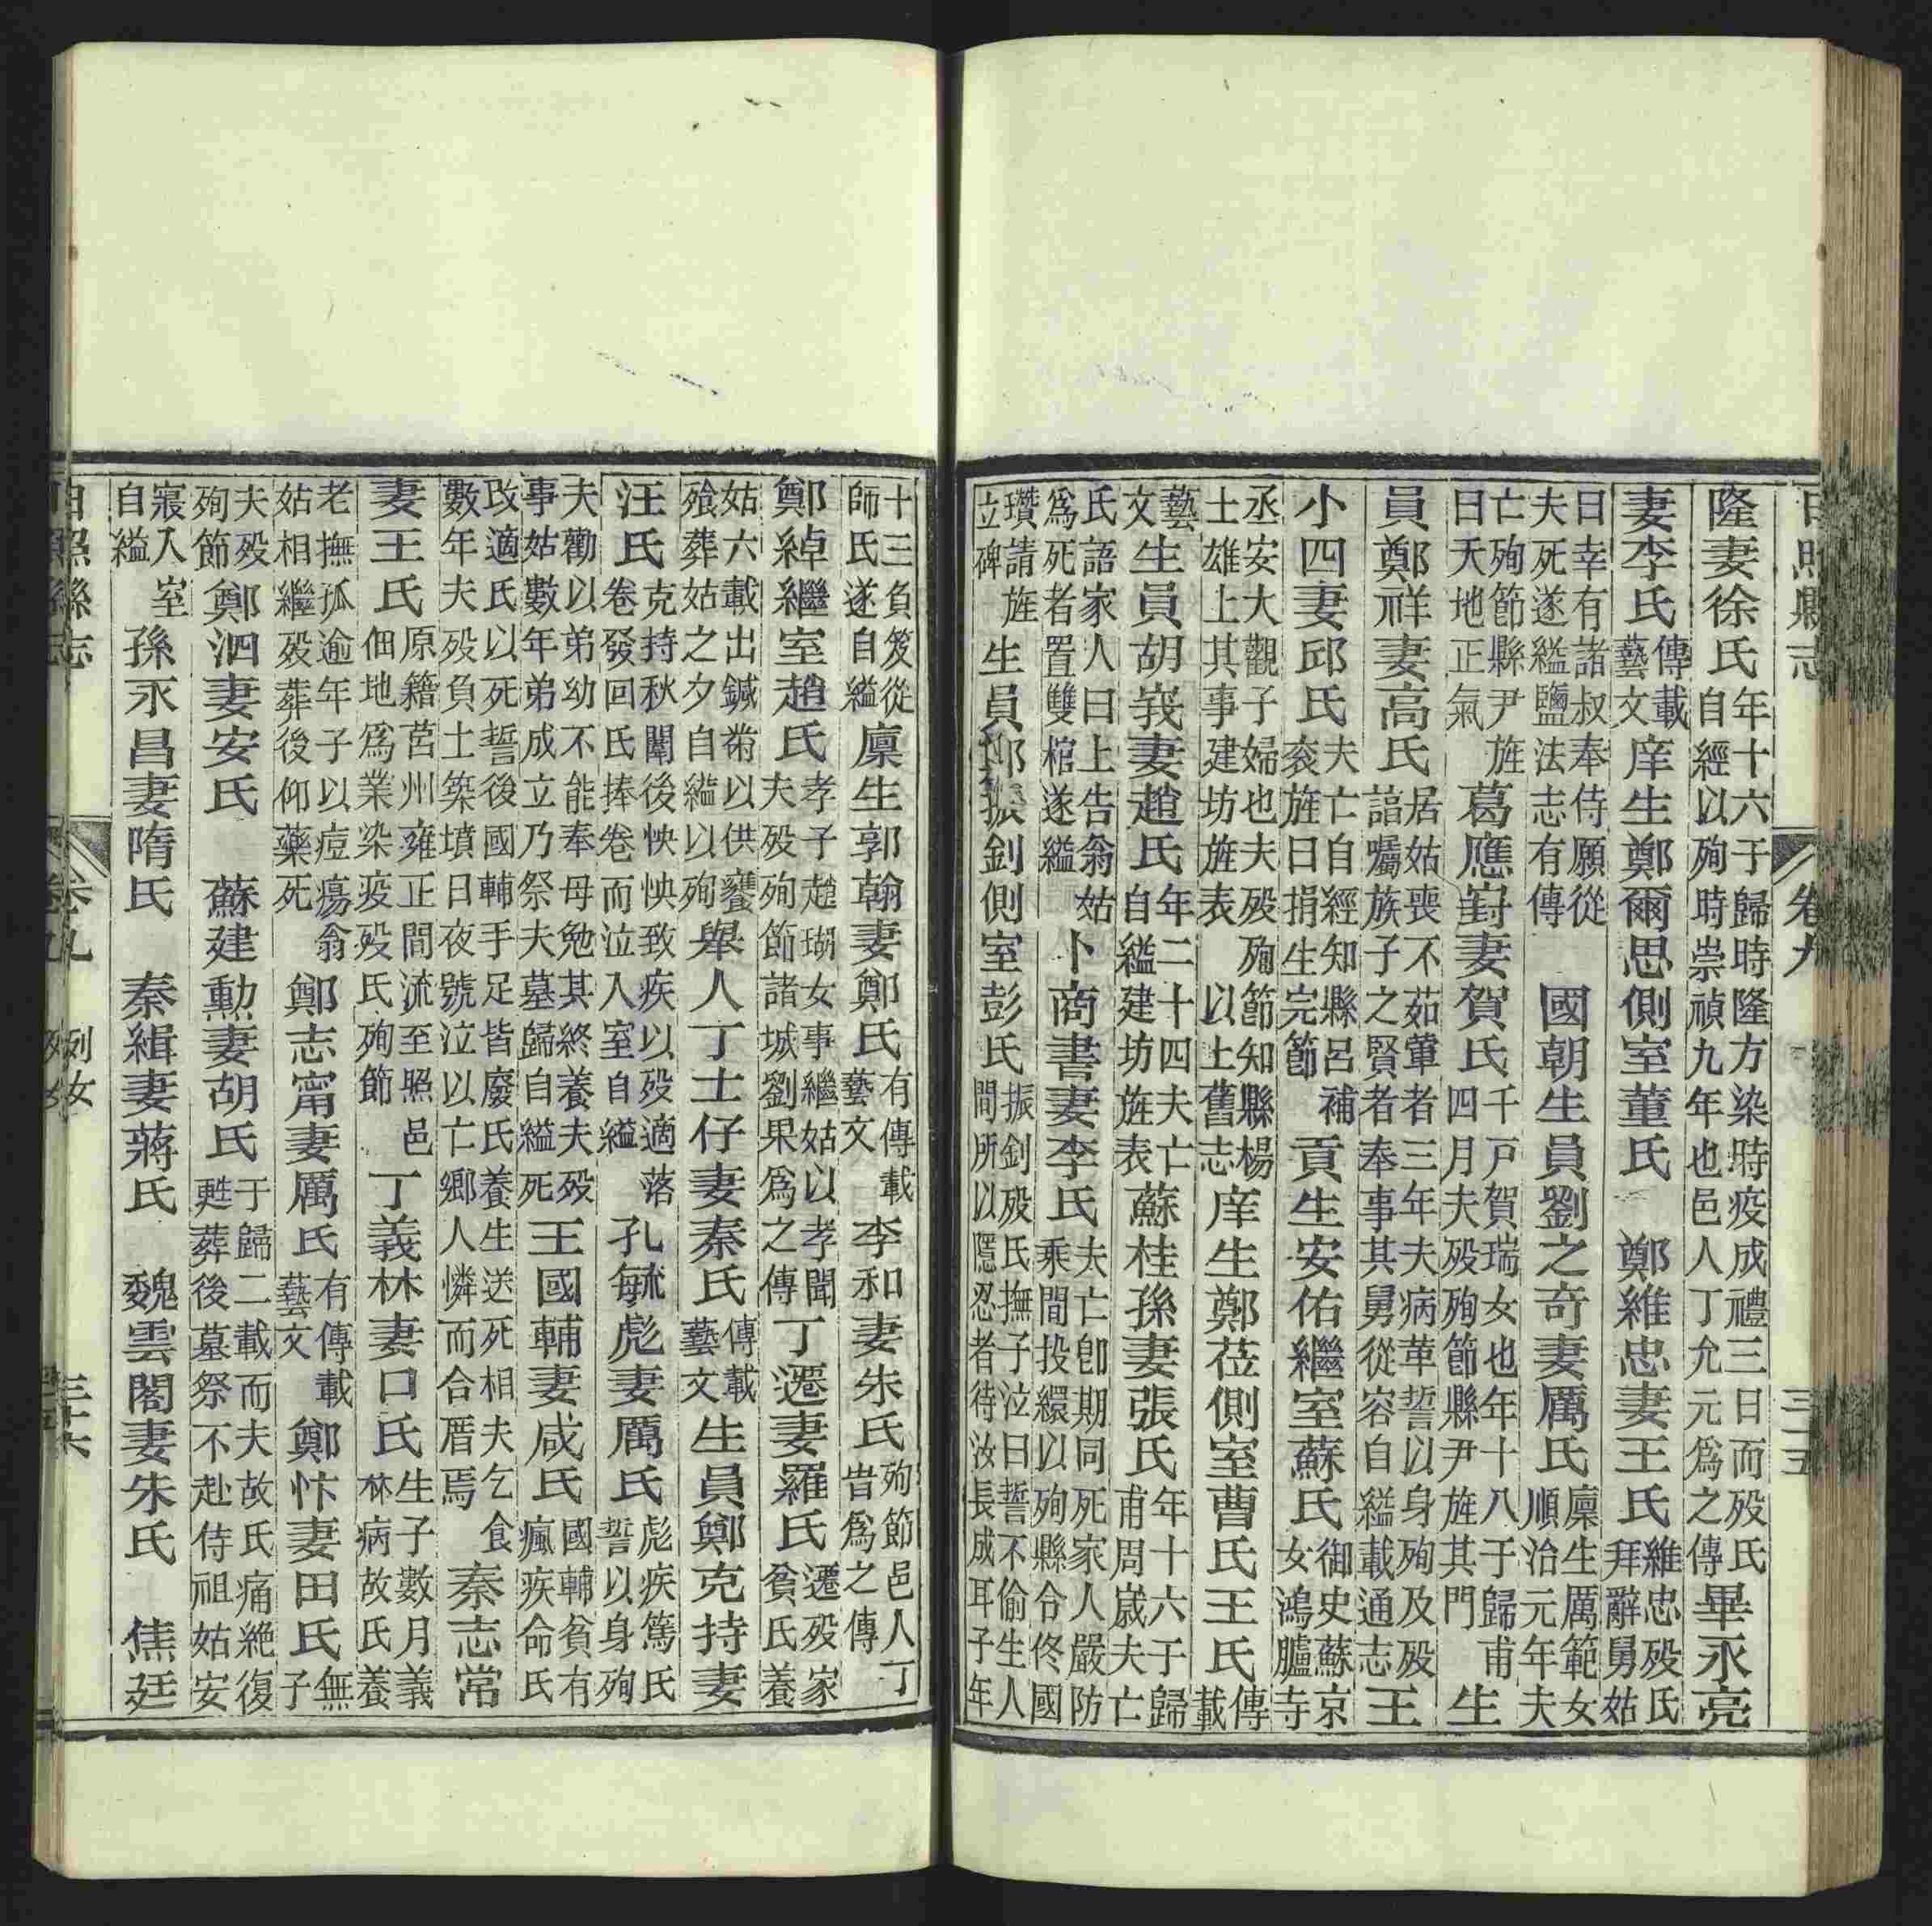 日照縣志 卷九 三十五
隆妻徐氏年十六于歸時隆方染時疫成禮三日而歿氏自經以殉時崇禎九年也邑人丁允元為之傳畢永亮
妻李氏傳載藝文 庠生鄭爾思側室董氏 鄭維忠妻王氏維忠歿氏拜辭舅姑
曰幸有諸叔奉侍願從夫死遂縊鹽法志有傳 國朝生員劉之奇妻厲氏廩生厲範女順治元年夫
亡殉節縣尹旌曰天地正氣 葛應對妻賀氏千戶賀瑞女也年十八于歸甫四月夫歿殉節縣尹旌其門 生
員鄭祥妻高氏居姑喪不茹葷者三年夫病革誓以身殉及歿諳囑族子之賢者奉事其舅從容自縊載通志王
小四妻邱氏夫亡自經知縣呂補袞旌曰捐生完節 貢生安佑繼室蘇氏御史蘇京女鴻臚寺
丞安大觀子婦也夫歿殉節知縣楊士雄上其事建坊旌表以上舊志 庠生鄭莅側室曹氏王氏傳載
藝文 生員胡峩妻趙氏年二十四夫亡自縊建坊旌表 蘇桂孫妻張氏年十六于歸甫周歲夫亡
氏語家人曰上告翁姑為死者置雙棺遂縊 卜商書妻李氏夫亡卽期同死家人嚴防乘間投繯以殉縣令佟國
瓚請旌立碑 生員鄭振釗側室彭氏振釗歿氏撫子泣曰誓不偷生人間所以隱忍者待汝長成耳子年
十三負笈從師氏遂自縊 廩生郭翰妻鄭氏有傳載藝文 李和妻朱氏殉節邑人丁旹為之傳
鄭綽繼室趙氏孝子趙瑚女事繼姑以孝聞夫歿殉節諸城劉果為之傳 丁遷妻羅氏遷歿家貧氏養
姑六載出鍼黹以供饔飱葬姑之夕自縊以殉 舉人丁士仔妻秦氏傳載藝文 生員鄭克持妻
汪氏克持秋闈後怏怏致疾以歿適落卷發回氏捧卷而泣入室自縊 孔毓彪妻厲氏彪疾篤氏誓以身殉
夫勸以弟幼不能奉母勉其終養夫歿事姑數年弟成立乃祭夫墓歸自縊死 王國輔妻咸氏國輔貧有瘋疾命氏
改適氏以死誓後國輔手足皆廢氏養生送死相夫乞食數年夫歿負土築墳日夜號泣以亡鄉人憐而合厝焉 秦志常
妻王氏原籍莒州雍正間流至照邑佃地為業染疫歿氏殉節 丁義林妻口氏生子數月義林病故氏養
老撫孤逾年子以痘瘍翁姑相繼歿葬後仰藥死 鄭志甯妻厲氏有傳載藝文 鄭忭妻田氏無子
夫歿殉節 鄭泗妻安氏 蘇建勳妻胡氏于歸二載而夫故氏痛絶復甦葬後墓祭不赴侍祖姑安
寢入室自縊 孫永昌妻隋氏 秦緝妻蔣氏 魏雲閣妻朱氏 焦廷
日照縣志 卷九 列女 三十六